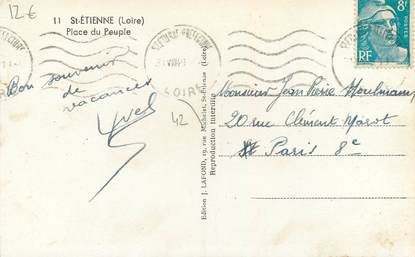 12 €
11 St-ÉTIENNE (Loire)
Place du Peuple
Bon souvenir
de
vacances
Yves
42
Edition J. LAFOND, 19, rue Michelet, St-Etienne (Loire)
Reproduction interdite
8F
RF
Monsieur Jean Pierre
20 rue Clément Marot
Paris 8e